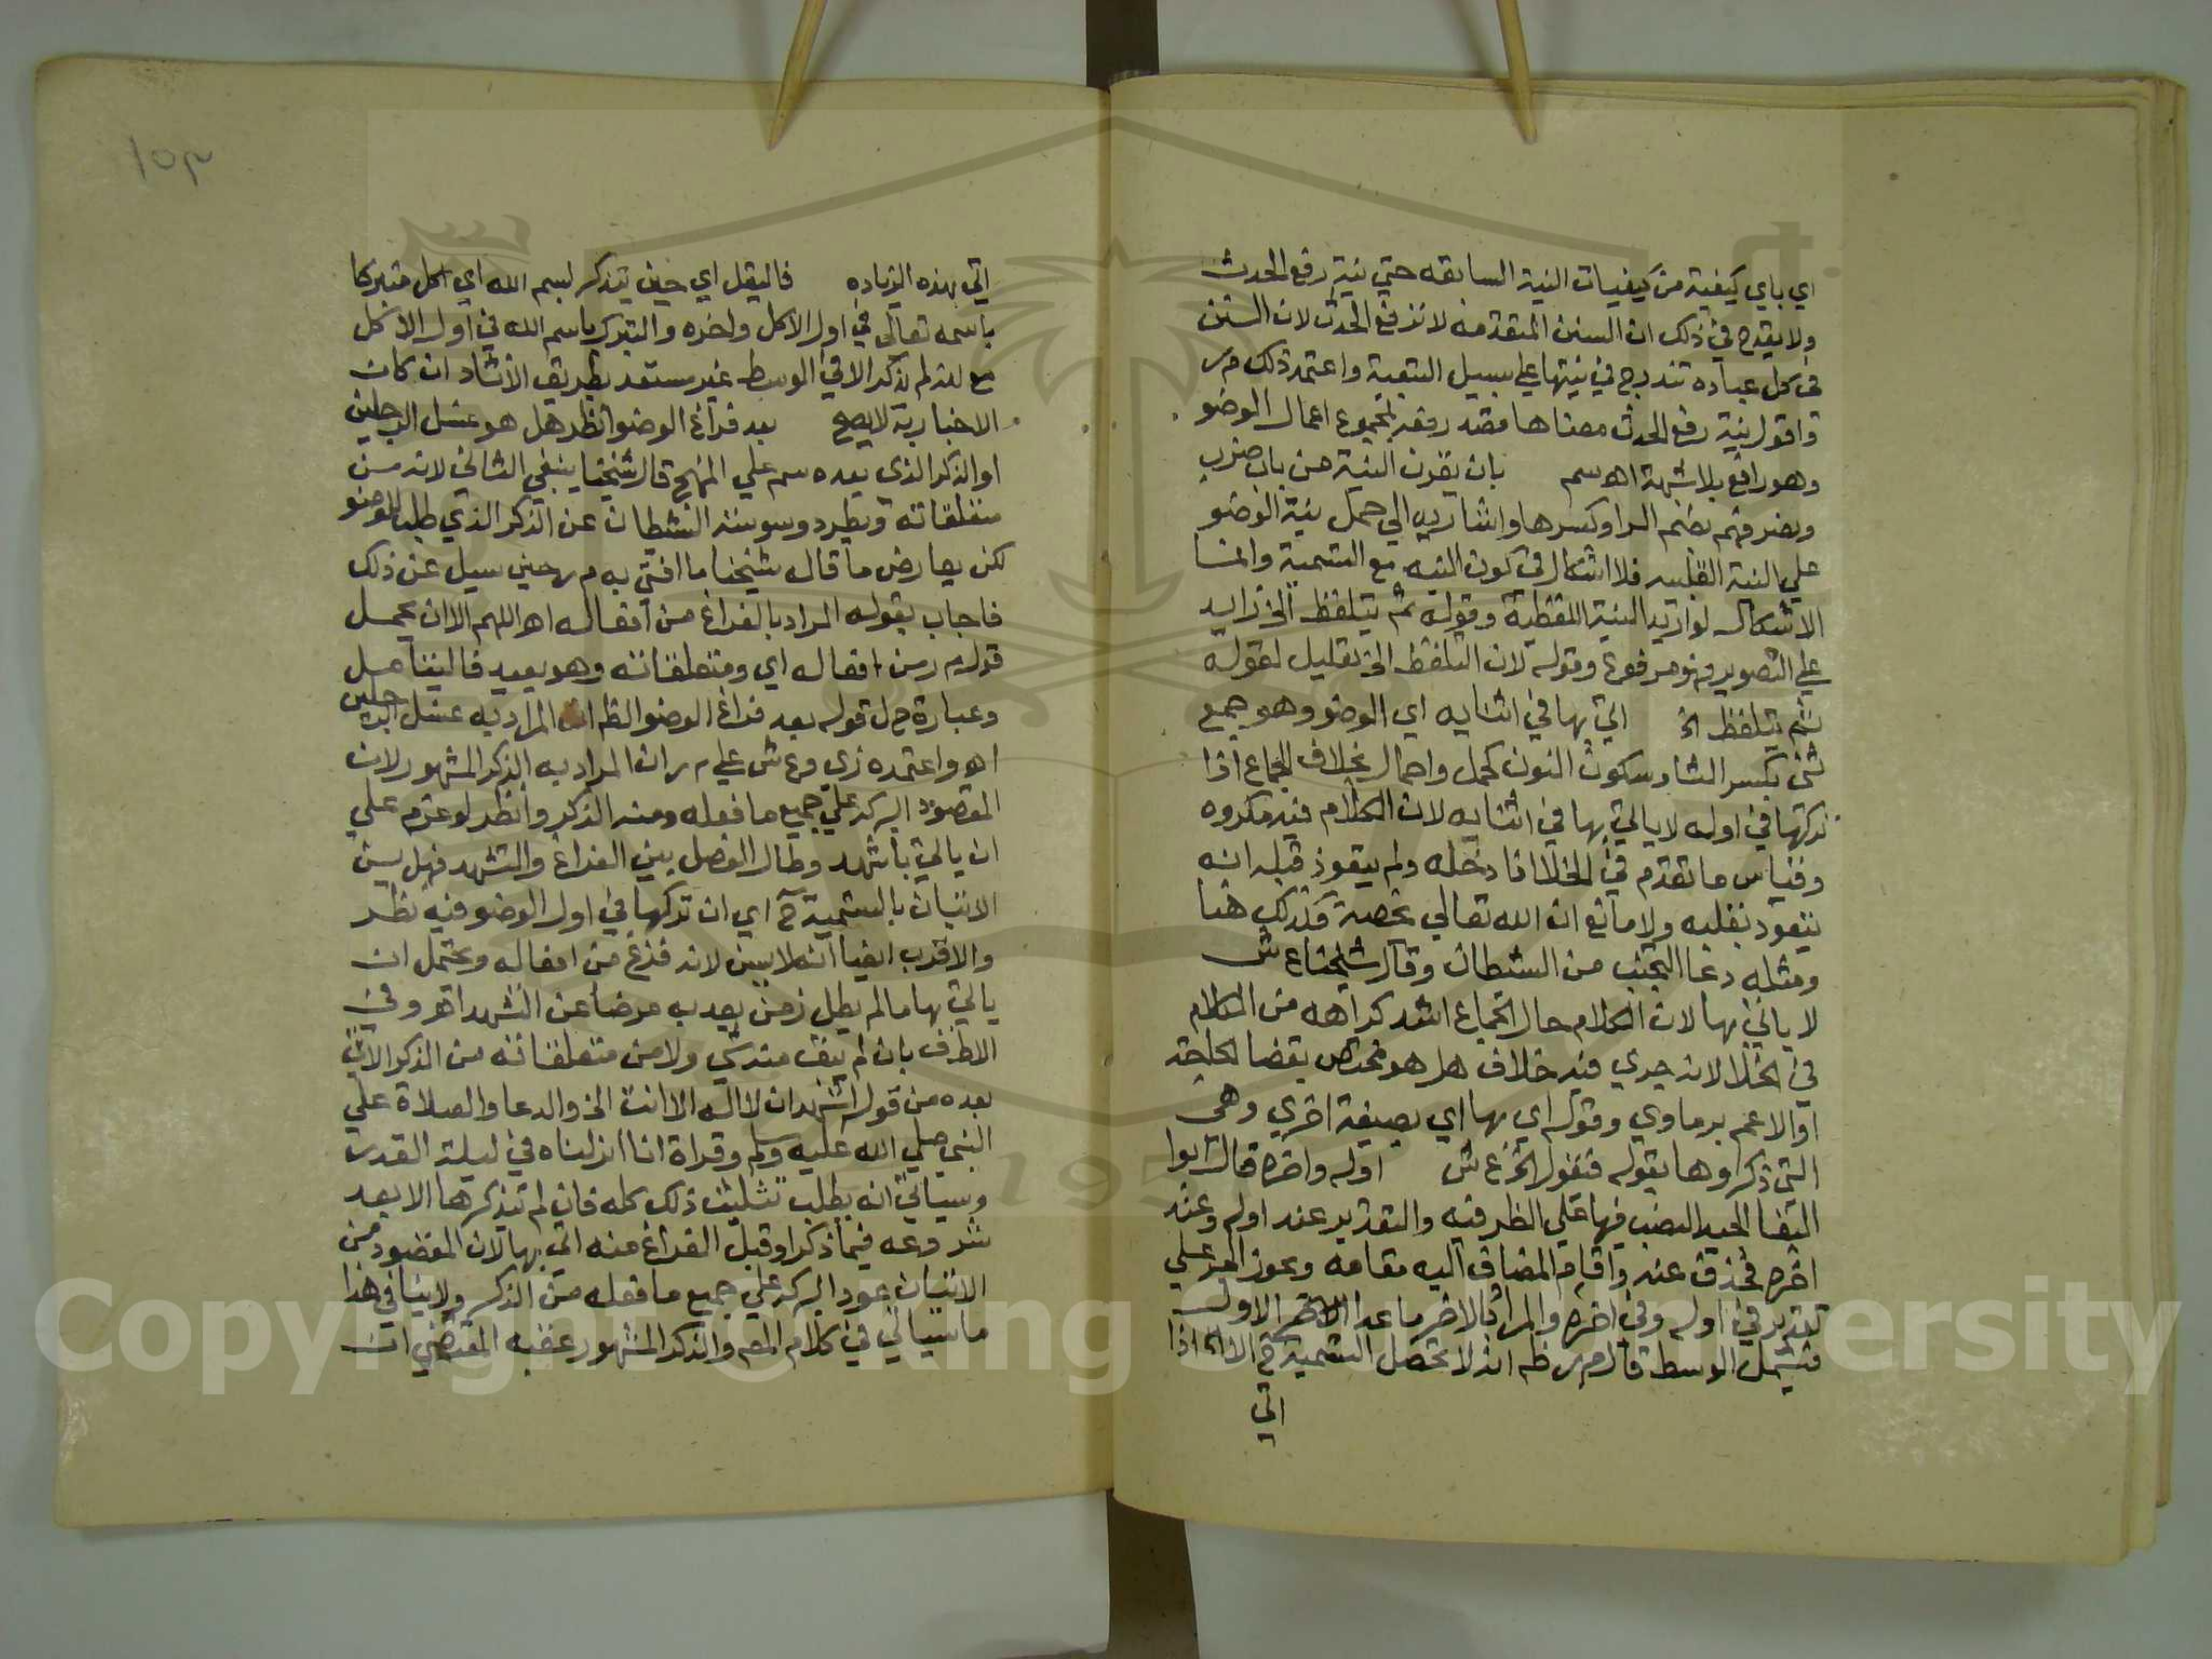 اي باي كيفية من كيفيات النية السابقه حتي نية رفع الحدث
ولا يقدح في ذلك ان السنن المتقدمه لا ترفع الحدث لان السنن
في كل عباده تندرج في نيتها علي سبيل التبعية واعتمد ذلك م ر
واقول نية رفع الحدث معناها قصد رفعه بمجموع اعمال الوضو
وهو رافع بلا شبهة اهـ سم بان يقرن النية من باب ضرب
وبضم الرا وكسرها واشار به الي حمل نية الوضو
علي النية القلبيه فلا اشكال في كون النيه مع التسمية وانما
الاشكال لو اريد النية اللفظية وقوله ثم يتلفظ الخ زايد
علي التصوير فهو مرفوع وقوله لان التلفظ الخ تعليل لقوله
ثم يتلفظ الخ اتي بها في اثنايه اي الوضو وهو جمع
ثني بكسر الثا وسكون النون كحمل واحمال بخلاف الجماع اذا
تركها في اوله لا ياتي بها في اثنايه لان الكلام فيه مكروه
وقياس ما تقدم في الخلا اذا دخله ولم يتعوذ قبله انه
يتعوذ بقلبه ولا مانع ان الله تعالي يحصنه فكذلك هنا
ومثله دعا التجنب من الشطان وقال شيخنا ع ش
لا ياتي بها لان الكلام حال الجماع اشد كراهه من الكلام
في الخلا لانه جري فيه خلاف هل هو مختص بقضا الحاجه
او الاعم برماوي وقوله اي بها اي بصيغة اخري وهي
التي ذكروها بقوله فيقول الخ ع ش اوله واخره قال ابوا
البقا الجيد النصب فيها علي الظرفيه والتقدير عند اوله وعند
اخره فحذف عند واقام المضاف اليه مقامه ويجوز الجر علي
تقدير في اوله وفي اخره والمراد بالاخر ما عدا الاول
فيشمل الوسط قال م ر ظه انه لا تحصل التسمية ح الا اذا
اتي
١٥٣
اتي بهذه الزياده فاليقل اي حين يتذكر بسم الله اي اكل متبركا
باسمه تعالي في اول الاكل واخره والتبرك باسم الله في اول الاكل
مع انه لم يذكر الا في الوسط غير مستعد بطريق الانشاد ان كان
الاخبارية لا يصح بعد فراغ الوضو انظر هل هو غسل الرجلين
او الذكر الذي بعده سم علي المنهج قال شيخنا ينبغي الثاني لانه من
متعلقاته ويطرد وسوسة الشيطان عن الذكر الذي طلب للوضو
لكن يعارض ما قاله شيخنا ما افتي به م ر حين سيل عن ذلك
فاجاب بقوله المراد بالفراغ من افعاله اهـ اللهم الا ان يحمل
قول م ر من افعاله اي ومتعلقاته وهو بعيد فاليتامل
وعبارة ح ل قوله بعد فراغ الوضو الظ ان المراد به غسل الرجلين
اهـ واعتمده زي وع ش علي م ر ان المراد به الذكر المشهور لان
المقصود البركه علي جميع ما فعله ومنه الذكر وانظر لو عزم علي
ان ياتي بالتشهد وطال الفصل بين الفراغ والتشهد فهل يسن
الاتيان بالتسمية ح اي ان تركها في اول الوضو فيه نظر
والاقرب ايضا انه لا يسن لانه فرغ من افعاله ويحتمل ان
ياتي بها ما لم يطل زمن يعد به معرضا عن التشهد اهـ وفي
الاطرف بان لم يبق منه شي ولا من متعلقاته من الذكر الاتي
بعده من قول اشهد ان لا اله الا انت الخ والدعا والصلاة علي
النبي صلي الله عليه وسلم وقراة انا انزلناه في ليلة القدر
وسياتي انه يطلب تثليث ذلك كله فان لم يتذكرها الا بعد
شروعه فيما ذكر او قبل الفراغ منه اتي بها لان المقصود من
الاتيان عود البركه علي جميع ما فعله من الذكر ولا ينافي هذا
ما سياتي في كلام المص والذكر المشهور عقبه المقتضي ان
Copyright © King Saud University
195